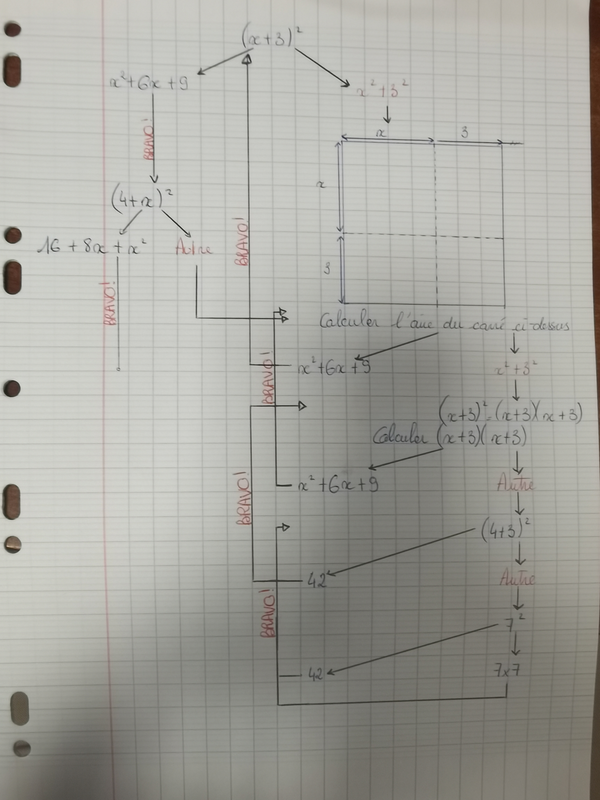 (x+3)²
x²+6x+9
x²+3²
x
3
BRAVO!
x
(4+x)²
16 + 8x + x²
Autre
BRAVO!
3
BRAVO!
Calculer l'aire du carré ci-dessus
x²+6x+9
x²+3²
BRAVO!
(x+3)²=(x+3)(x+3)
Calculer (x+3)(x+3)
x²+6x+9
Autre
BRAVO!
(4+3)²
42
Autre
BRAVO!
7²
42
7x7